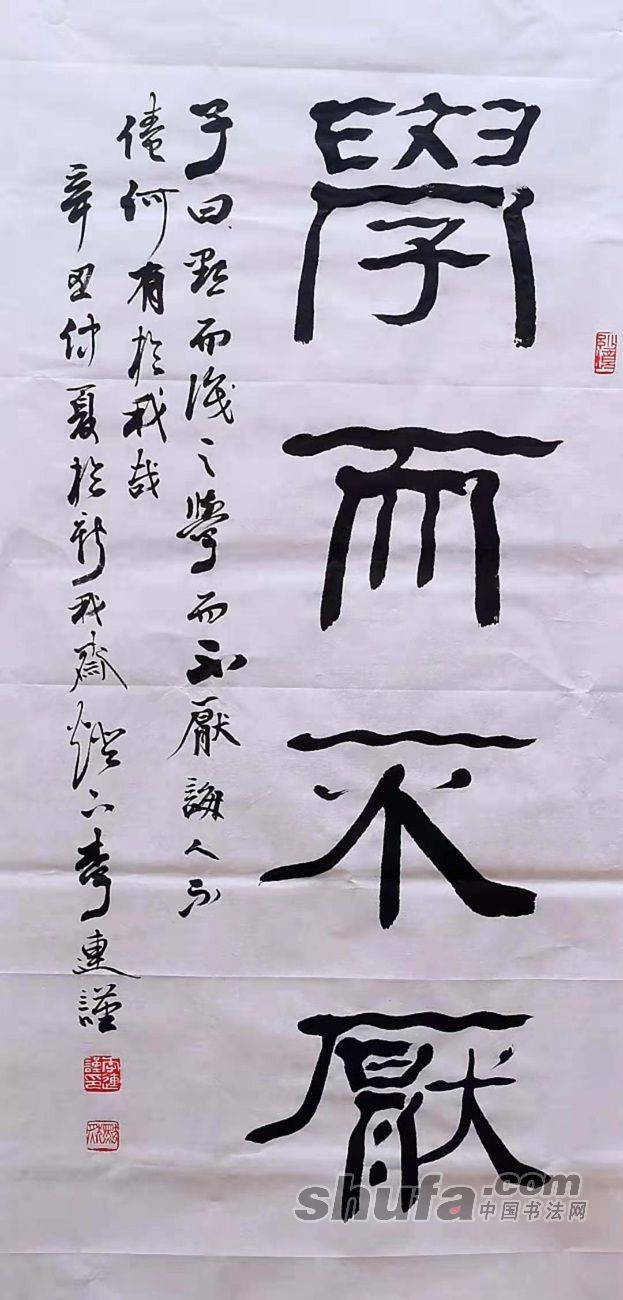 學而不厭
子曰默而識之學而不厭誨人不
倦何有於我哉
辛丑仲夏於新我齋燈下李連謹
shufa.com
中国书法网